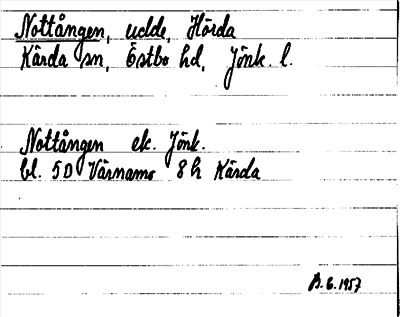 Nottången, udde, Hörda
Kärda sn, Östbo hd, Jönk. l.
Nottången ek. Jönk.
bl. 5D Värnamo 8h Kärda
B.G. 1957